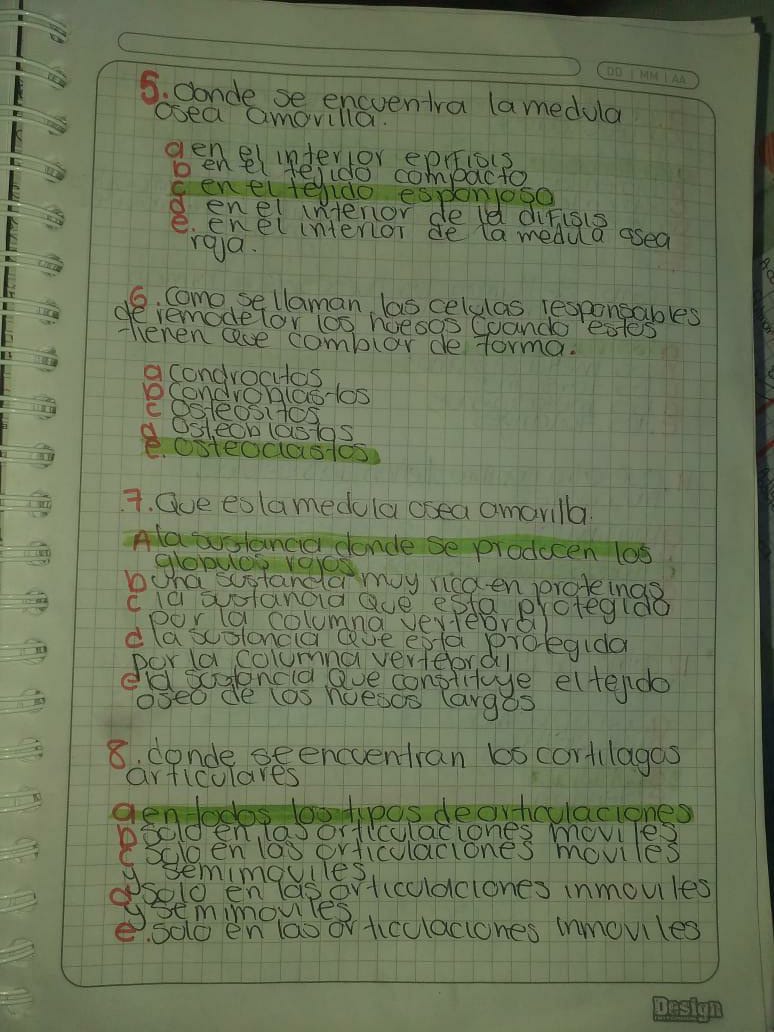 DD | MM | AA
5. donde se encuentra la medula
osea amarilla.
a en el interior epifisis
b en el tejido compacto
c en el tejido esponjoso
d en el interior de la difisis
e. en el interior de la medula osea
roja.
6. como se llaman las celulas responsables
de remodelar los huesos cuando estos
tienen que cambiar de forma.
a condrocitos
b condroblastos
c osteositos
d osteoblastos
e. osteoclastos
7. Que es la medula osea amarilla.
A la sustancia donde se producen los
globulos rojos
b una sustancia muy rica en proteinas
c la sustancia que esta protegida
por la columna vertebral
d la sustancia que esta protegida
por la columna vertebral
e la sustancia que constituye el tejido
oseo de los huesos largos
8. donde se encuentran los cortilagos
articulares
a en todos los tipos de articulaciones
b solo en las articulaciones moviles
c solo en las articulaciones moviles
y semimoviles
d solo en las articulaciones inmoviles
y semimoviles
e. solo en las articulaciones inmoviles
Design